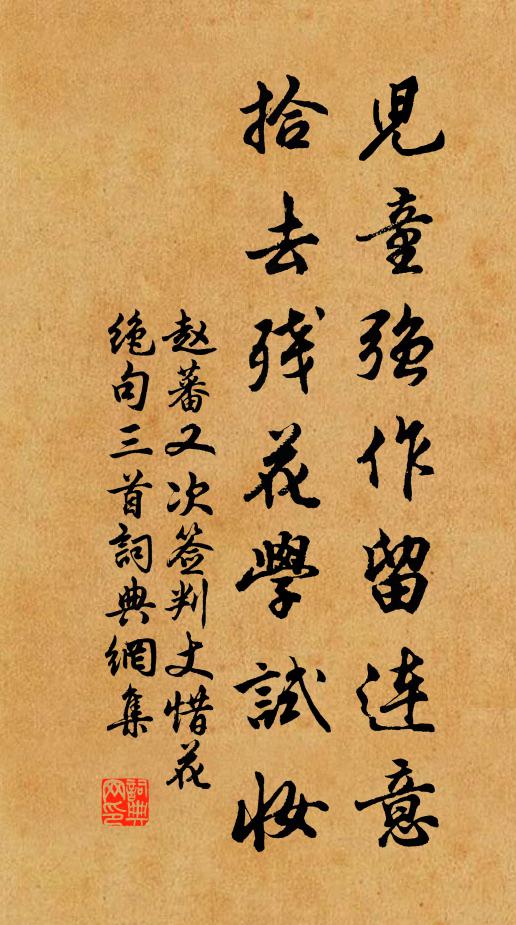 児童強作留連意
拾去残花學試妝
赵蕃又次簽判丈惜花
絶句三首詞典網集
詞典网印